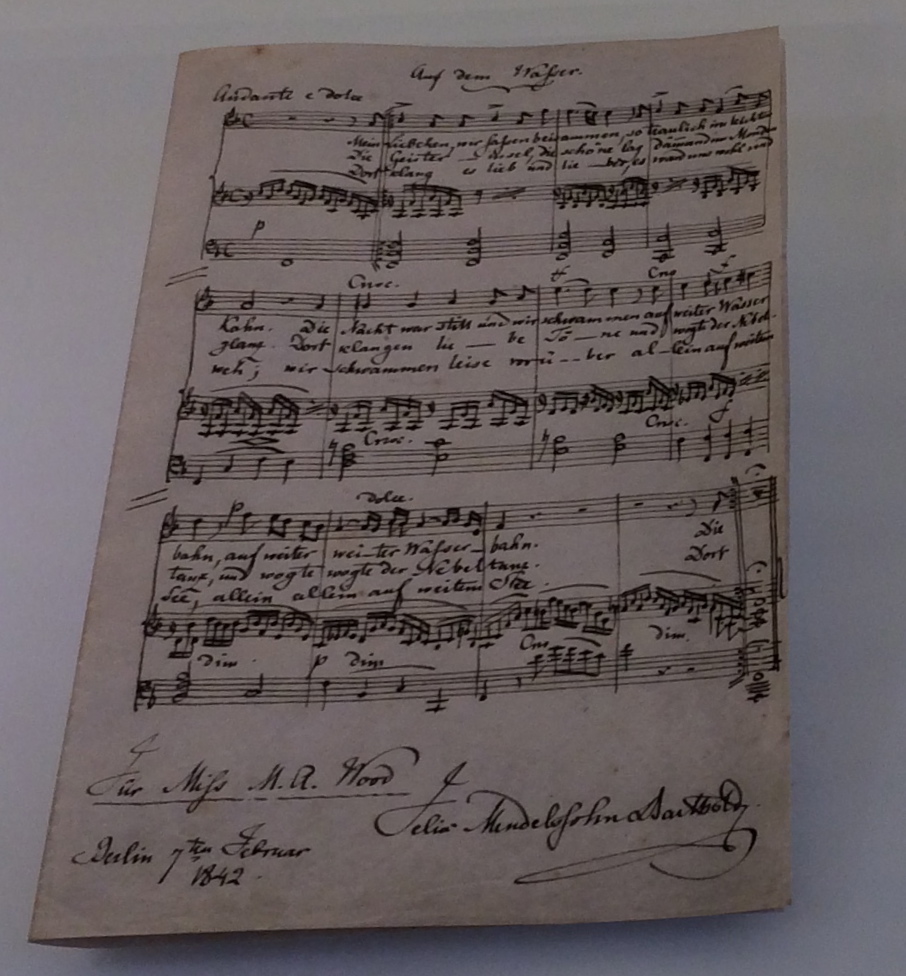 Auf dem Wasser.
Andante e dolce
Mein Liebchen, wir saßen beisammen, so traulich im leichten
Die Geister - Insel, die schöne lag dämmrd im Monden
Dort klang es lieb und lie - ber, es ward uns wohl und
p
Cresc.
sf
Cresc.
f
Kahn. Die Nacht war still und wir schwammen auf weiter Wasser
glanz. Dort klangen lie - be Tö - ne und wogte der Nebel-
weh; wir schwammen leise vorü - ber al - lein auf weitem
Cresc.
Cresc.
f
p
dolce.
bahn, auf weiter wei-ter Wasser - bahn. Die
tanz, und wogte wogte der Nebeltanz. Dort
See, allein allein auf weitem See.
dim.
p
dim
Cresc.
dim.
Für Miss M. A. Wood
Felix Mendelssohn Bartholdy
Berlin 7ten Februar
1842.